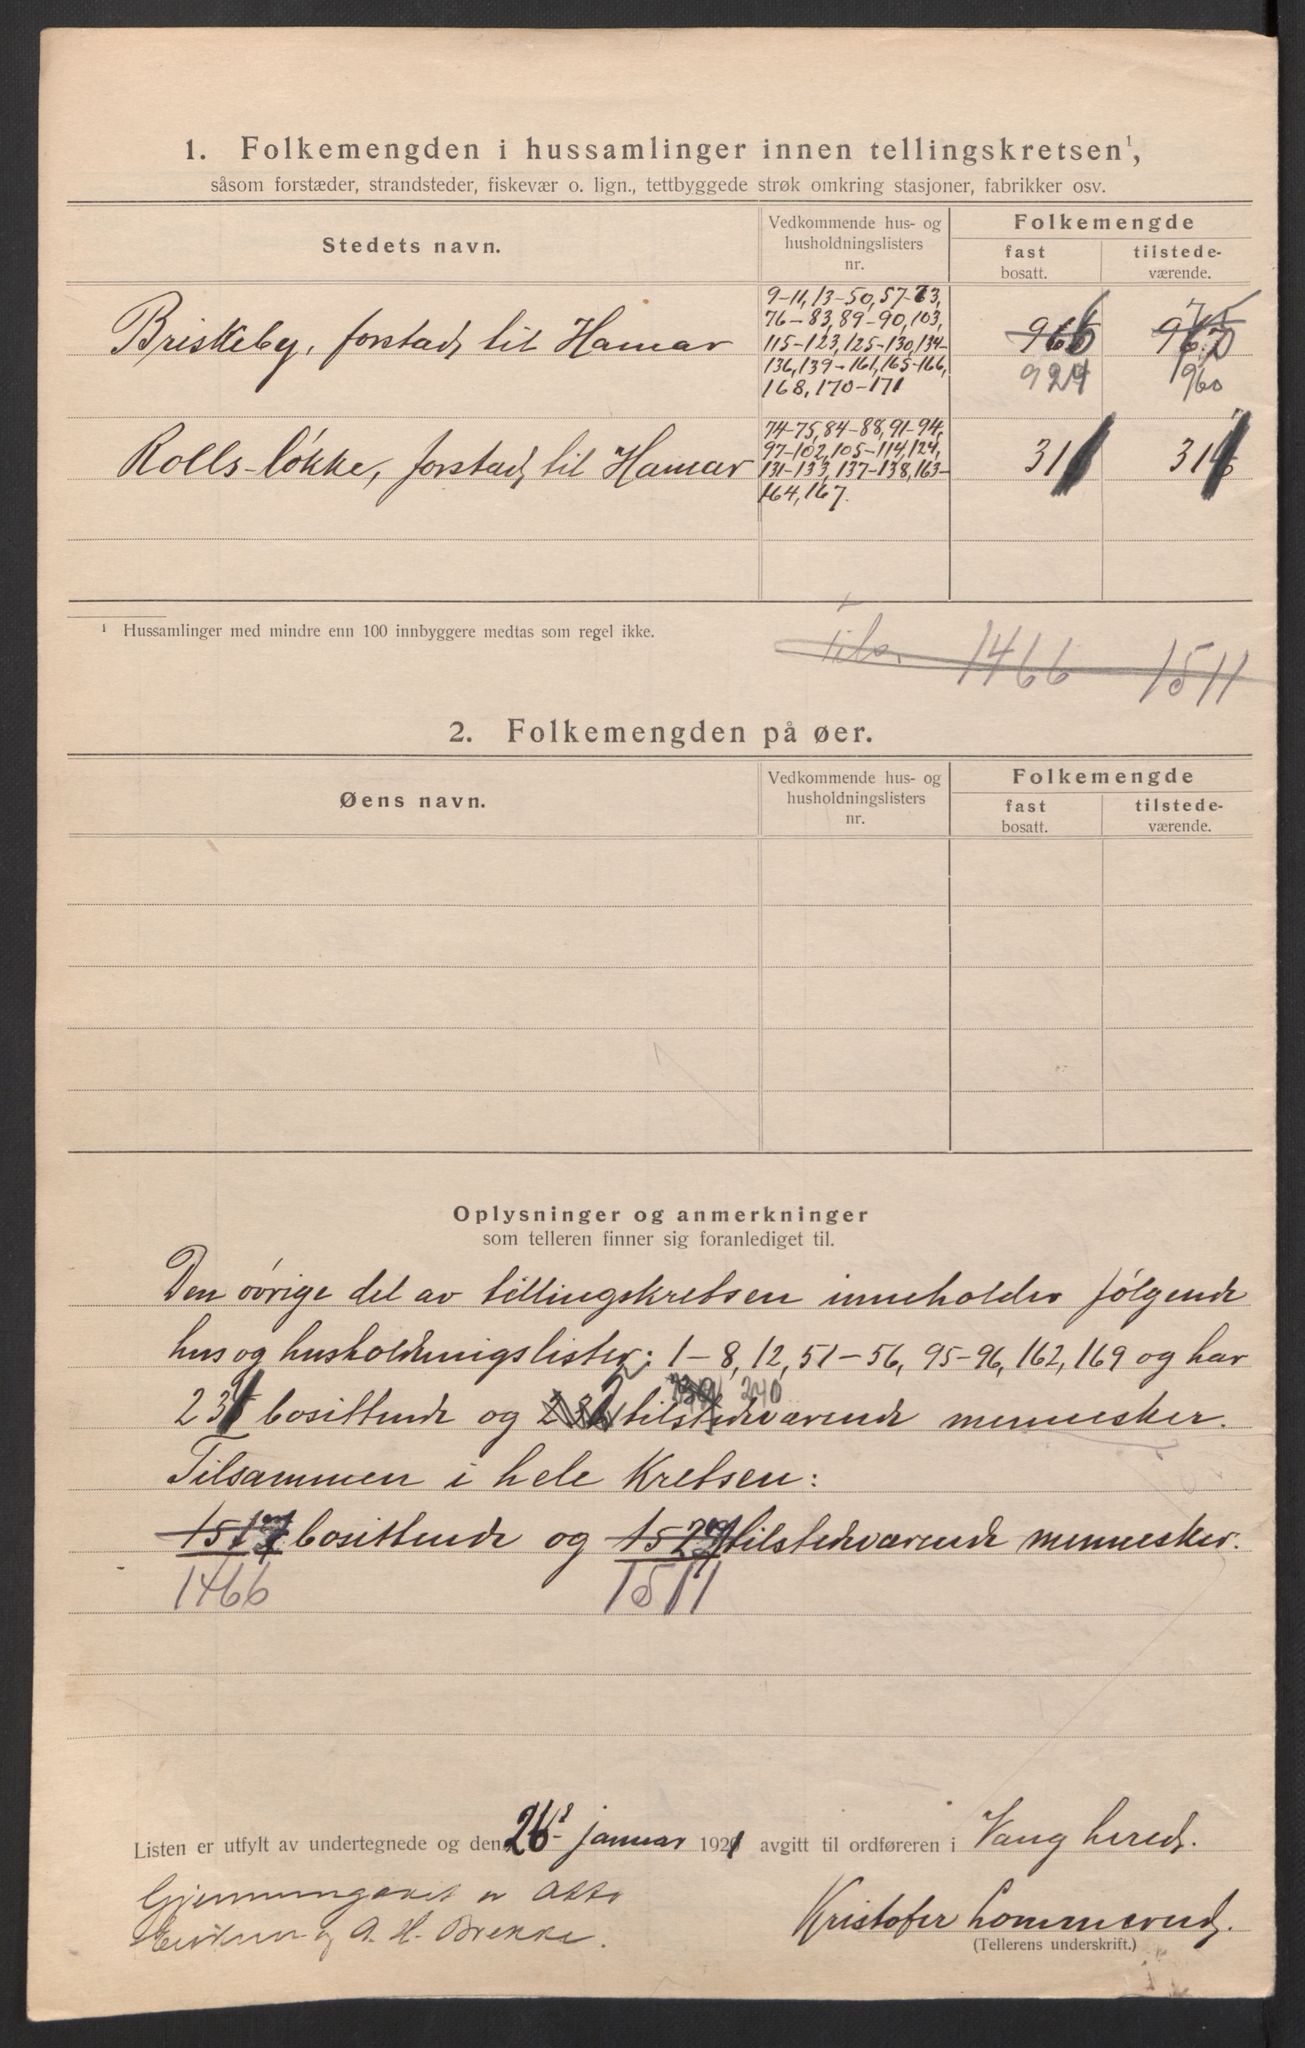 1. Folkemengden i hussamlinger innen tellingskretsen¹,
såsom forstæder, strandsteder, fiskevær o. lign., tettbyggede strøk omkring stasjoner, fabrikker osv.
Stedets navn.
Vedkommende hus- og
husholdningslisters
nr.
Folkemengde
fast
bosatt.
tilstede-
værende.
Briskeby, forstad til Hamar
9-11, 13-50, 57-73,
76-83, 89-90, 103,
115-123, 125-130, 134-
136, 139-161, 165-166,
168, 170-171
966
924
960
Rolls-løkke, forstad til Hamar
74-75, 84-88, 91-94,
97-102, 105-114, 124,
131-133, 137-138, 163-
164, 167.
31
31
¹ Hussamlinger med mindre enn 100 innbyggere medtas som regel ikke.
Tils. 1466 1511
2. Folkemengden på øer.
Øens navn.
Vedkommende hus- og
husholdningslisters
nr.
Folkemengde
fast
bosatt.
tilstede-
værende.
Oplysninger og anmerkninger
som telleren finner sig foranlediget til.
Den øvrige del av tellingskretsen inneholder følgende
hus og husholdningslister: 1-8, 12, 51-56, 95-96, 162, 169 og har
240
23 bosittende og tilstedeværende mennesker.
Tilsammen i hele Kretsen:
bosittende og tilstedeværende mennesker.
1466 1511
Listen er utfylt av undertegnede og den 26 januar 1921 avgitt til ordføreren i Vang herred.
Gjennumgaaet av
og A. H. Brekke.
Kristofer Lommerud.
(Tellerens underskrift.)